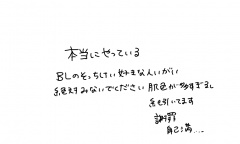 本当にやっている
BLのそっちけい好きな人いがい
絶対みないでください 肌色が多すぎるし
糸も引いてます
謝罪
自己満....